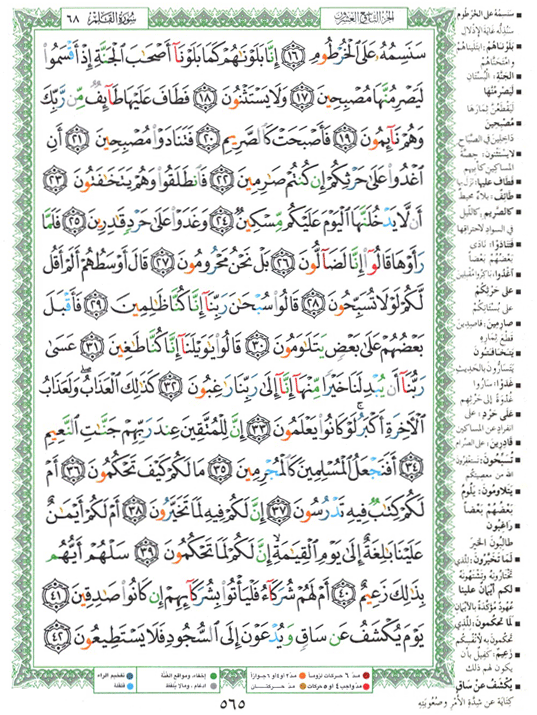 الجزء التاسع والعشرون
سورة القلم ٦٨
سَنَسِمُهُۥ عَلَى ٱلۡخُرۡطُومِ ١٦ إِنَّا بَلَوۡنَٰهُمۡ كَمَا بَلَوۡنَآ أَصۡحَٰبَ ٱلۡجَنَّةِ إِذۡ أَقۡسَمُواْ
لَيَصۡرِمُنَّهَا مُصۡبِحِينَ ١٧ وَلَا يَسۡتَثۡنُونَ ١٨ فَطَافَ عَلَيۡهَا طَآئِفٞ مِّن رَّبِّكَ
وَهُمۡ نَآئِمُونَ ١٩ فَأَصۡبَحَتۡ كَٱلصَّرِيمِ ٢٠ فَتَنَادَوۡاْ مُصۡبِحِينَ ٢١ أَنِ
ٱغۡدُواْ عَلَىٰ حَرۡثِكُمۡ إِن كُنتُمۡ صَٰرِمِينَ ٢٢ فَٱنطَلَقُواْ وَهُمۡ يَتَخَٰفَتُونَ ٢٣
أَن لَّا يَدۡخُلَنَّهَا ٱلۡيَوۡمَ عَلَيۡكُم مِّسۡكِينٞ ٢٤ وَغَدَوۡاْ عَلَىٰ حَرۡدٖ قَٰدِرِينَ ٢٥ فَلَمَّا
رَأَوۡهَا قَالُوٓاْ إِنَّا لَضَآلُّونَ ٢٦ بَلۡ نَحۡنُ مَحۡرُومُونَ ٢٧ قَالَ أَوۡسَطُهُمۡ أَلَمۡ أَقُل
لَّكُمۡ لَوۡلَا تُسَبِّحُونَ ٢٨ قَالُواْ سُبۡحَٰنَ رَبِّنَآ إِنَّا كُنَّا ظَٰلِمِينَ ٢٩ فَأَقۡبَلَ
بَعۡضُهُمۡ عَلَىٰ بَعۡضٖ يَتَلَٰوَمُونَ ٣٠ قَالُواْ يَٰوَيۡلَنَآ إِنَّا كُنَّا طَٰغِينَ ٣١ عَسَىٰ
رَبُّنَآ أَن يُبۡدِلَنَا خَيۡرٗا مِّنۡهَآ إِنَّآ إِلَىٰ رَبِّنَا رَٰغِبُونَ ٣٢ كَذَٰلِكَ ٱلۡعَذَابُۖ وَلَعَذَابُ
ٱلۡأٓخِرَةِ أَكۡبَرُۚ لَوۡ كَانُواْ يَعۡلَمُونَ ٣٣ إِنَّ لِلۡمُتَّقِينَ عِندَ رَبِّهِمۡ جَنَّٰتِ ٱلنَّعِيمِ
٣٤ أَفَنَجۡعَلُ ٱلۡمُسۡلِمِينَ كَٱلۡمُجۡرِمِينَ ٣٥ مَا لَكُمۡ كَيۡفَ تَحۡكُمُونَ ٣٦ أَمۡ
لَكُمۡ كِتَٰبٞ فِيهِ تَدۡرُسُونَ ٣٧ إِنَّ لَكُمۡ فِيهِ لَمَا تَخَيَّرُونَ ٣٨ أَمۡ لَكُمۡ أَيۡمَٰنٌ
عَلَيۡنَا بَٰلِغَةٌ إِلَىٰ يَوۡمِ ٱلۡقِيَٰمَةِ إِنَّ لَكُمۡ لَمَا تَحۡكُمُونَ ٣٩ سَلۡهُمۡ أَيُّهُم
بِذَٰلِكَ زَعِيمٌ ٤٠ أَمۡ لَهُمۡ شُرَكَآءُ فَلۡيَأۡتُواْ بِشُرَكَآئِهِمۡ إِن كَانُواْ صَٰدِقِينَ ٤١
يَوۡمَ يُكۡشَفُ عَن سَاقٖ وَيُدۡعَوۡنَ إِلَى ٱلسُّجُودِ فَلَا يَسۡتَطِيعُونَ ٤٢
سنسمه على الخرطوم
سنذله غاية الإذلال
بلوناهم: ابتليناهم
وامتحناهم
الجنة: البستان
ليصرمنها
ليقطعن ثمارها
مصبحين
داخلين في الصباح
لا يستثنون: حصة
المساكين كأبيهم
فطاف عليها: نزل بها
طائف: بلاء محيط
كالصريم: كالليل
في السواد لاحتراقها
فتنادوا: نادى
بعضهم بعضا
اغدوا: باكروا مقبلين
على حرثكم
على بستانكم
صارمين: قاصدين
قطع ثماره
يتخافتون
يتسارون بالحديث
غدوا: ساروا
غدوة إلى حرثهم
على حرد: على
انفراد عن المساكين
قادرين: على الصرام
تسبحون: تستغفرون
الله من معصيتكم
يتلاومون: يلوم
بعضهم بعضا
راغبون
طالبون الخير
لما تخيرون: للذي
تختارونه وتشتهونه
لكم أيمان علينا
عهود مؤكدة بالأيمان
لما تحكمون: للذي
تحكمون به لأنفسكم
زعيم: كفيل بأن
يكون لهم ذلك
يكشف عن ساق
كناية عن شدة الأمر وصعوبته
مد ٦ حركات لزوماً مد ٢ أو ٤ أو ٦ جوازاً إخفاء، ومواقع الغنة تفخيم الراء
مد واجب ٤ أو ٥ حركات مد حركتان إدغام، وما لا يلفظ قلقلة
٥٦٥